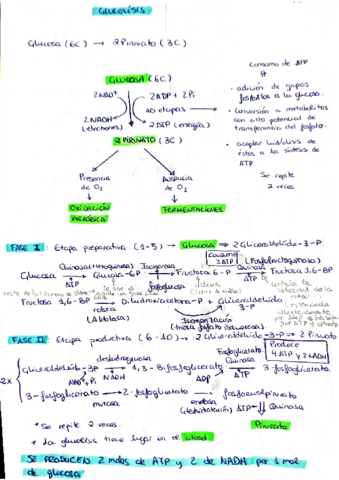 GLUCÓLISIS
Glucosa (6C) → 2 Piruvato (3C)
GLUCOSA (6C)
Consumo de ATP
2 NAD+
2 ADP + 2 Pi
10 etapas
2 NADH
(electrones)
2 ATP (energía)
2 PIRUVATO (3C)
• adición de grupos
fosfatos a la glucosa.
• Conversión a metabolitos
con alto potencial de
transferencia del fosfato.
• acoplar hidrólisis de
éstos a la síntesis de
ATP.
Se repite
2 veces
Presencia
de O2
Ausencia
de O2
OXIDACIÓN
AERÓBICA
FERMENTACIONES
FASE I: Etapa preparativa (1-5) → Glucosa → 2 Gliceraldehído-3-P
Consume
2 ATP
(Fosfofructoquinasa)
Quinasa (Hexoquinasa) Isomerasa Quinasa
Glucosa → Glucosa-6P → Fructosa 6-P → Fructosa 1,6-BP
ATP ATP
Fructosa 1,6-BP → Dihidroxiacetona-P + Gliceraldehído
3-P
rotura
(Aldolasa)
Isomerización
(triosa fosfato isomerasa)
FASE II: Etapa productiva (6-10) → 2 Gliceraldehído-3-P → 2 Piruvato
Produce
4 ATP y 2 NADH
deshidrogenasa
Fosfoglicerato
Quinasa
2x Gliceraldehído-3P → 1,3-Bifosfoglicerato → 3-fosfoglicerato
NAD+, Pi NADH ADP ATP
3-fosfoglicerato → 2-fosfoglicerato → fosfoenolpiruvato
mutasa enolasa
(deshidratación) ATP Quinasa
Piruvato
* Se repite 2 veces.
* La glucólisis tiene lugar en el citosol.
SE PRODUCEN 2 moles de ATP y 2 de NADH por 1 mol
de glucosa